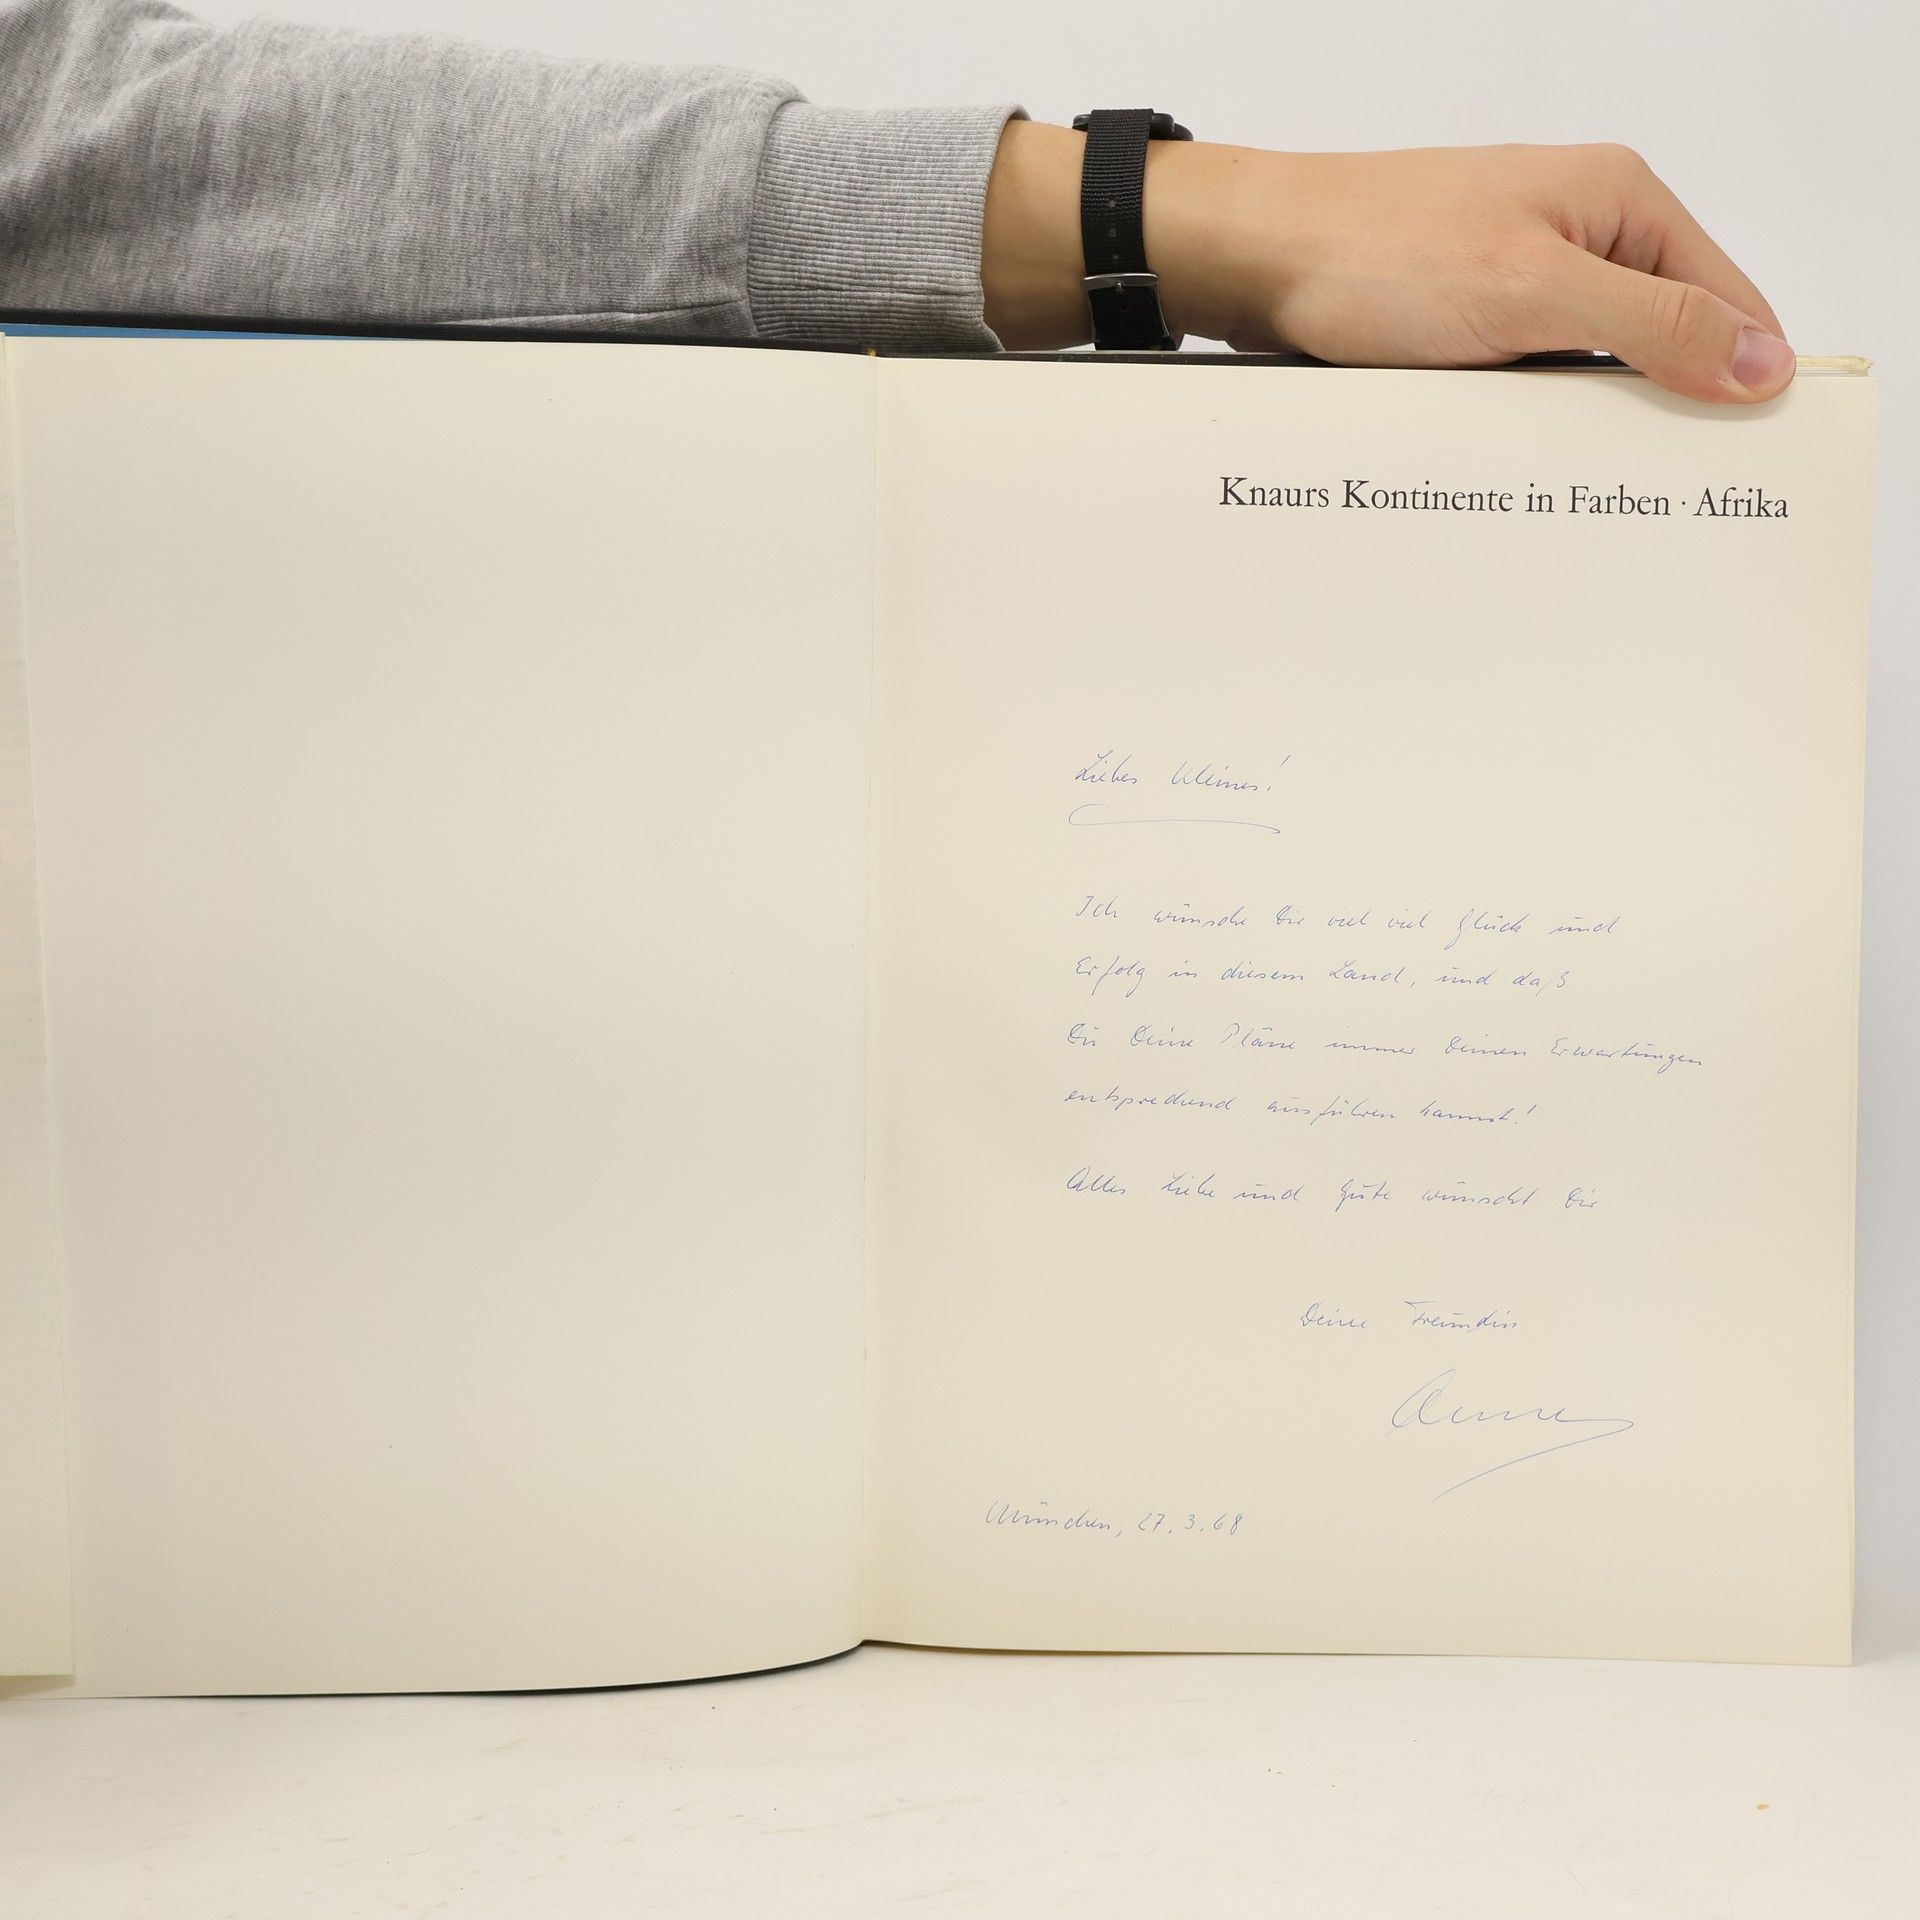 Knaurs Kontinente in Farben · Afrika
Liebes Kleines!
Ich wünsche Dir viel viel Glück und
Erfolg in diesem Land, und daß
Du Deine Pläne immer Deinen Erwartungen
entsprechend ausführen kannst!
Alles Liebe und Gute wünscht Dir
Deine Freundin
Anne
München, 27.3.68